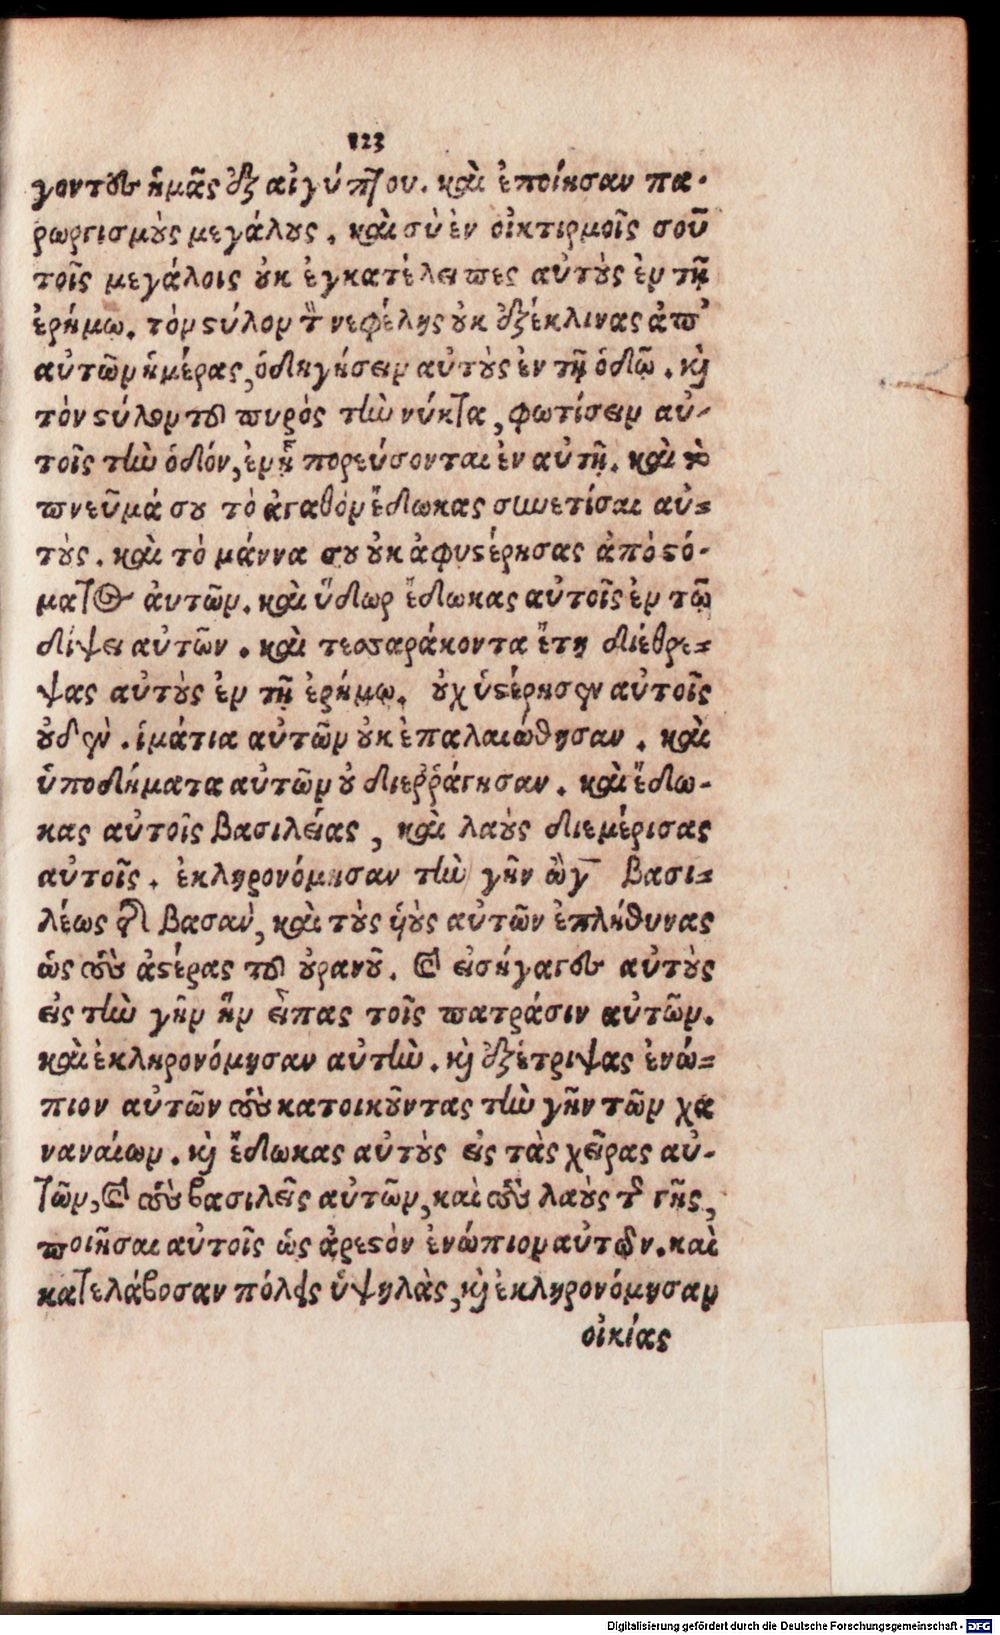 123
γοντες ἡμᾶς ἐξ αἰγύπτου. καὶ ἐποίησαν πα-
ρωργισμοὺς μεγάλους. καὶ σὺ ἐν οἰκτιρμοῖς σοῦ
τοῖς μεγάλοις οὐκ ἐγκατέλειπες αὐτοὺς ἐν τῇ
ἐρήμω. τὸν στύλον τῆς νεφέλης οὐκ ἐξέκλινας ἀπ’
αὐτῶν ἡμέρας, ὁδηγήσειν αὐτοὺς ἐν τῇ ὁδῷ. καὶ
τὸν στύλον τοῦ πυρὸς τὴν νύκτα, φωτίσειν αὐ-
τοῖς τὴν ὁδόν, ἐν ᾗ πορεύσονται ἐν αὐτῇ. καὶ τὸ
πνεῦμά σου τὸ ἀγαθὸν ἔδωκας συνετίσαι αὐ-
τοὺς. καὶ τὸ μάννα σου οὐκ ἀφυστέρησας ἀπὸ στό-
ματος ἀυτῶν. καὶ ὕδωρ ἔδωκας αὐτοῖς ἐν τῷ
δίψει αὐτῶν. καὶ τεσσαράκοντα ἔτη διέθρε-
ψας αὐτοὺς ἐν τῇ ἐρήμῳ. οὐχ ὑστέρησεν αὐτοῖς
οὐδὲν. ἱμάτια αὐτῶν οὐκ ἐπαλαιώθησαν. καὶ
ὑποδήματα αὐτῶν οὐ διεῤῥάγησαν. καὶ ἔδω-
κας αὐτοῖς βασιλείας, καὶ λαοὺς διεμέρισας
αὐτοῖς. ἐκληρονόμησαν τὴν γῆν ὢγ βασι-
λέως τοῦ βασαν, καὶ τοὺς υἱοὺς αὐτῶν ἐπλήθυνας
ὡς τοὺς ἀστέρας τοῦ οὐρανοῦ. καὶ εἰσήγαγες αὐτοὺς
εἰς τὴν γῆν ἣν εἶπας τοῖς πατράσιν αὐτῶν.
καὶ ἐκληρονόμησαν αὐτὴν. καὶ ἐξέτριψας ἐνώ-
πιον αὐτῶν τοὺς κατοικοῦντας τὴν γῆν τῶν χα
ναναίων. καὶ ἔδωκας αὐτοὺς εἰς τὰς χεῖρας αὐ-
τῶν, καὶ τοὺς βασιλεῖς αὐτῶν, καὶ τοὺς λαοὺς τῆς γῆς,
ποιῆσαι αὐτοῖς ὡς ἀρεστὸν ἐνώπιον αὐτῶν. καὶ
κατελάβοσαν πόλεις ὑψηλὰς, καὶ ἐκληρονόμησαν
οἰκίας
Digitalisierung gefördert durch die Deutsche Forschungsgemeinschaft - DFG